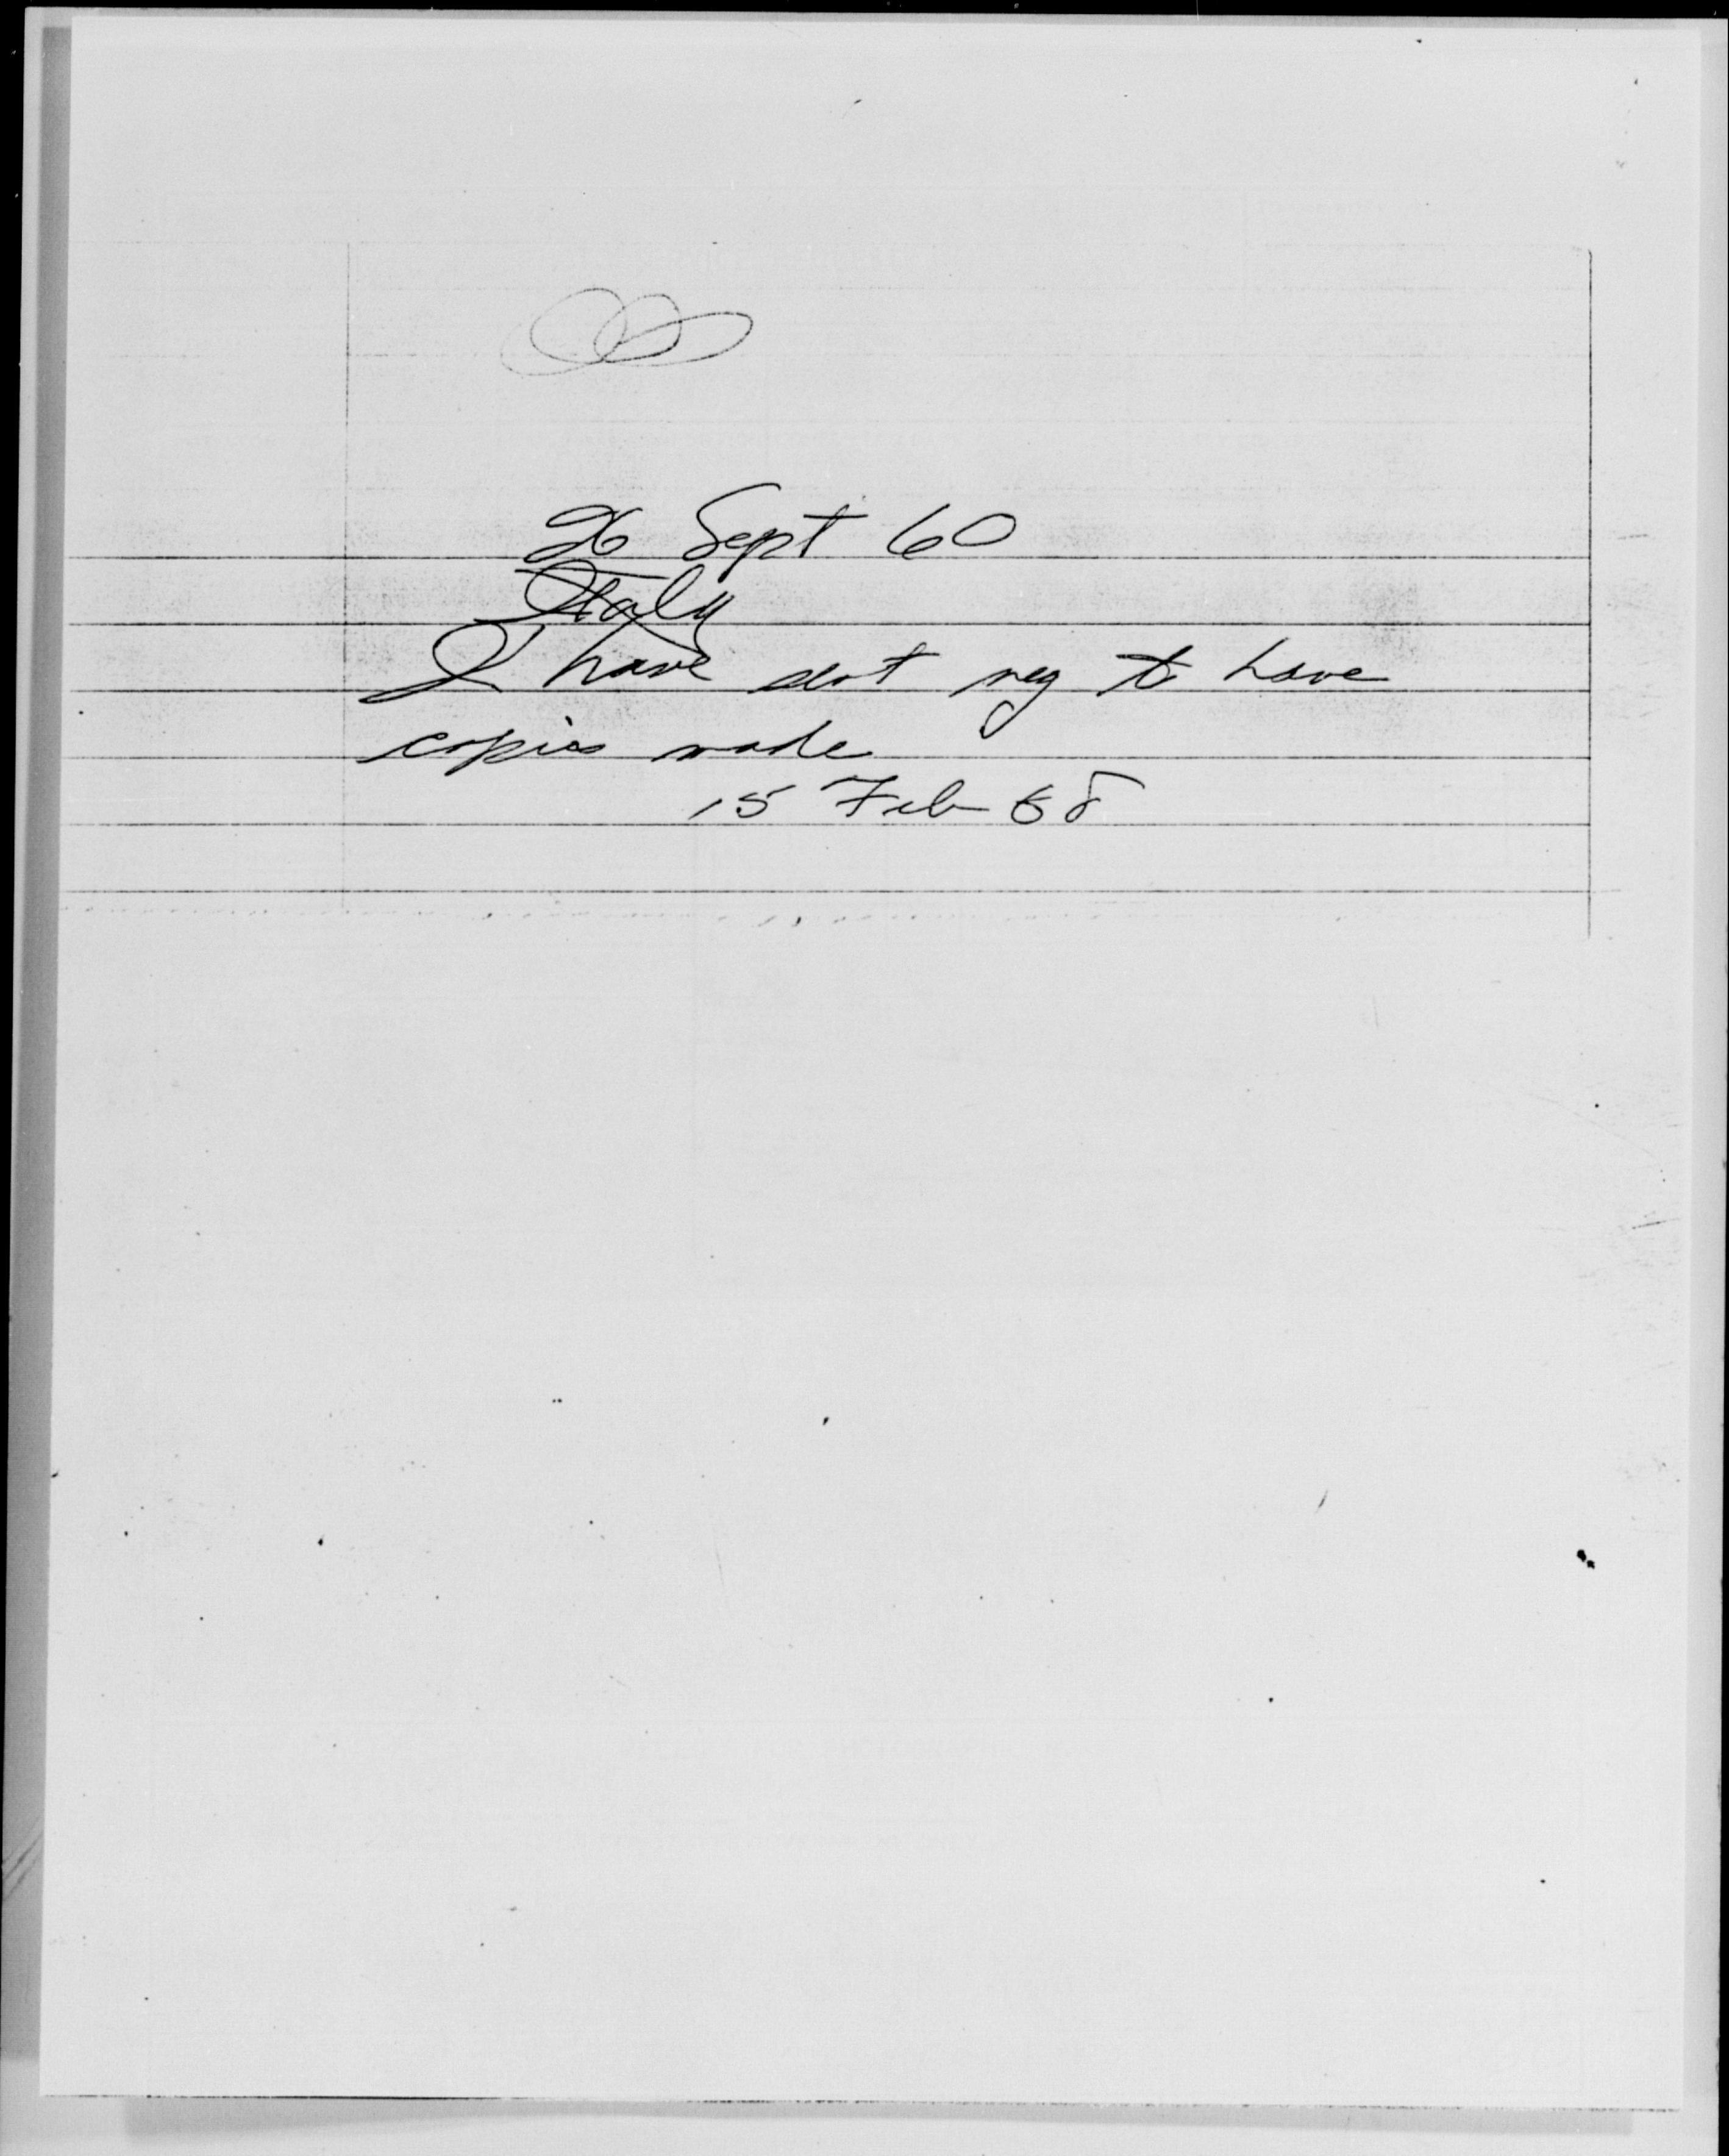 26 Sept 60
Italy
I have sent neg to have
copies made
15 Feb 68